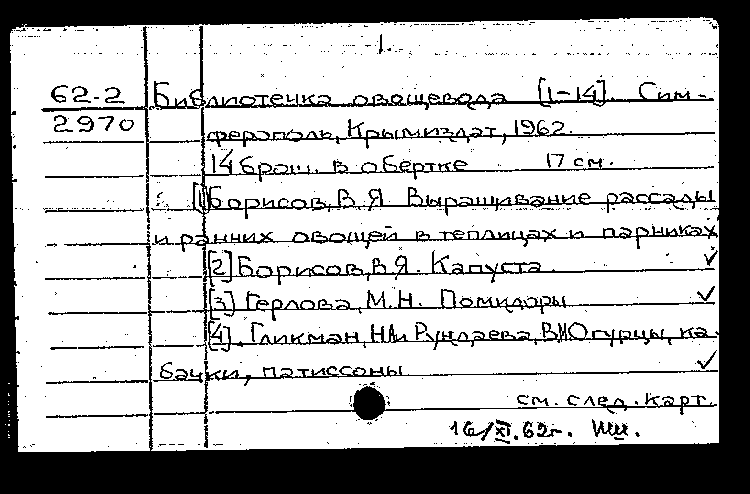 1.
62-2 Библиотечка овощевода [1-14]. Сим-
2970 ферополь, Крымиздат, 1962.
14 брош. в обертке 17 см.
[1] Борисов, В.Я. Выращивание рассады
и ранних овощей в теплицах и парниках
[2] Борисов, В.Я. Капуста. ✓
[3] Герлова, М.Н. Помидоры ✓
[4]. Гликман, Н.М. и Рундаева, В.И. Огурцы, ка-
бачки, патиссоны ✓
см. след. карт.
16/XI.62г.